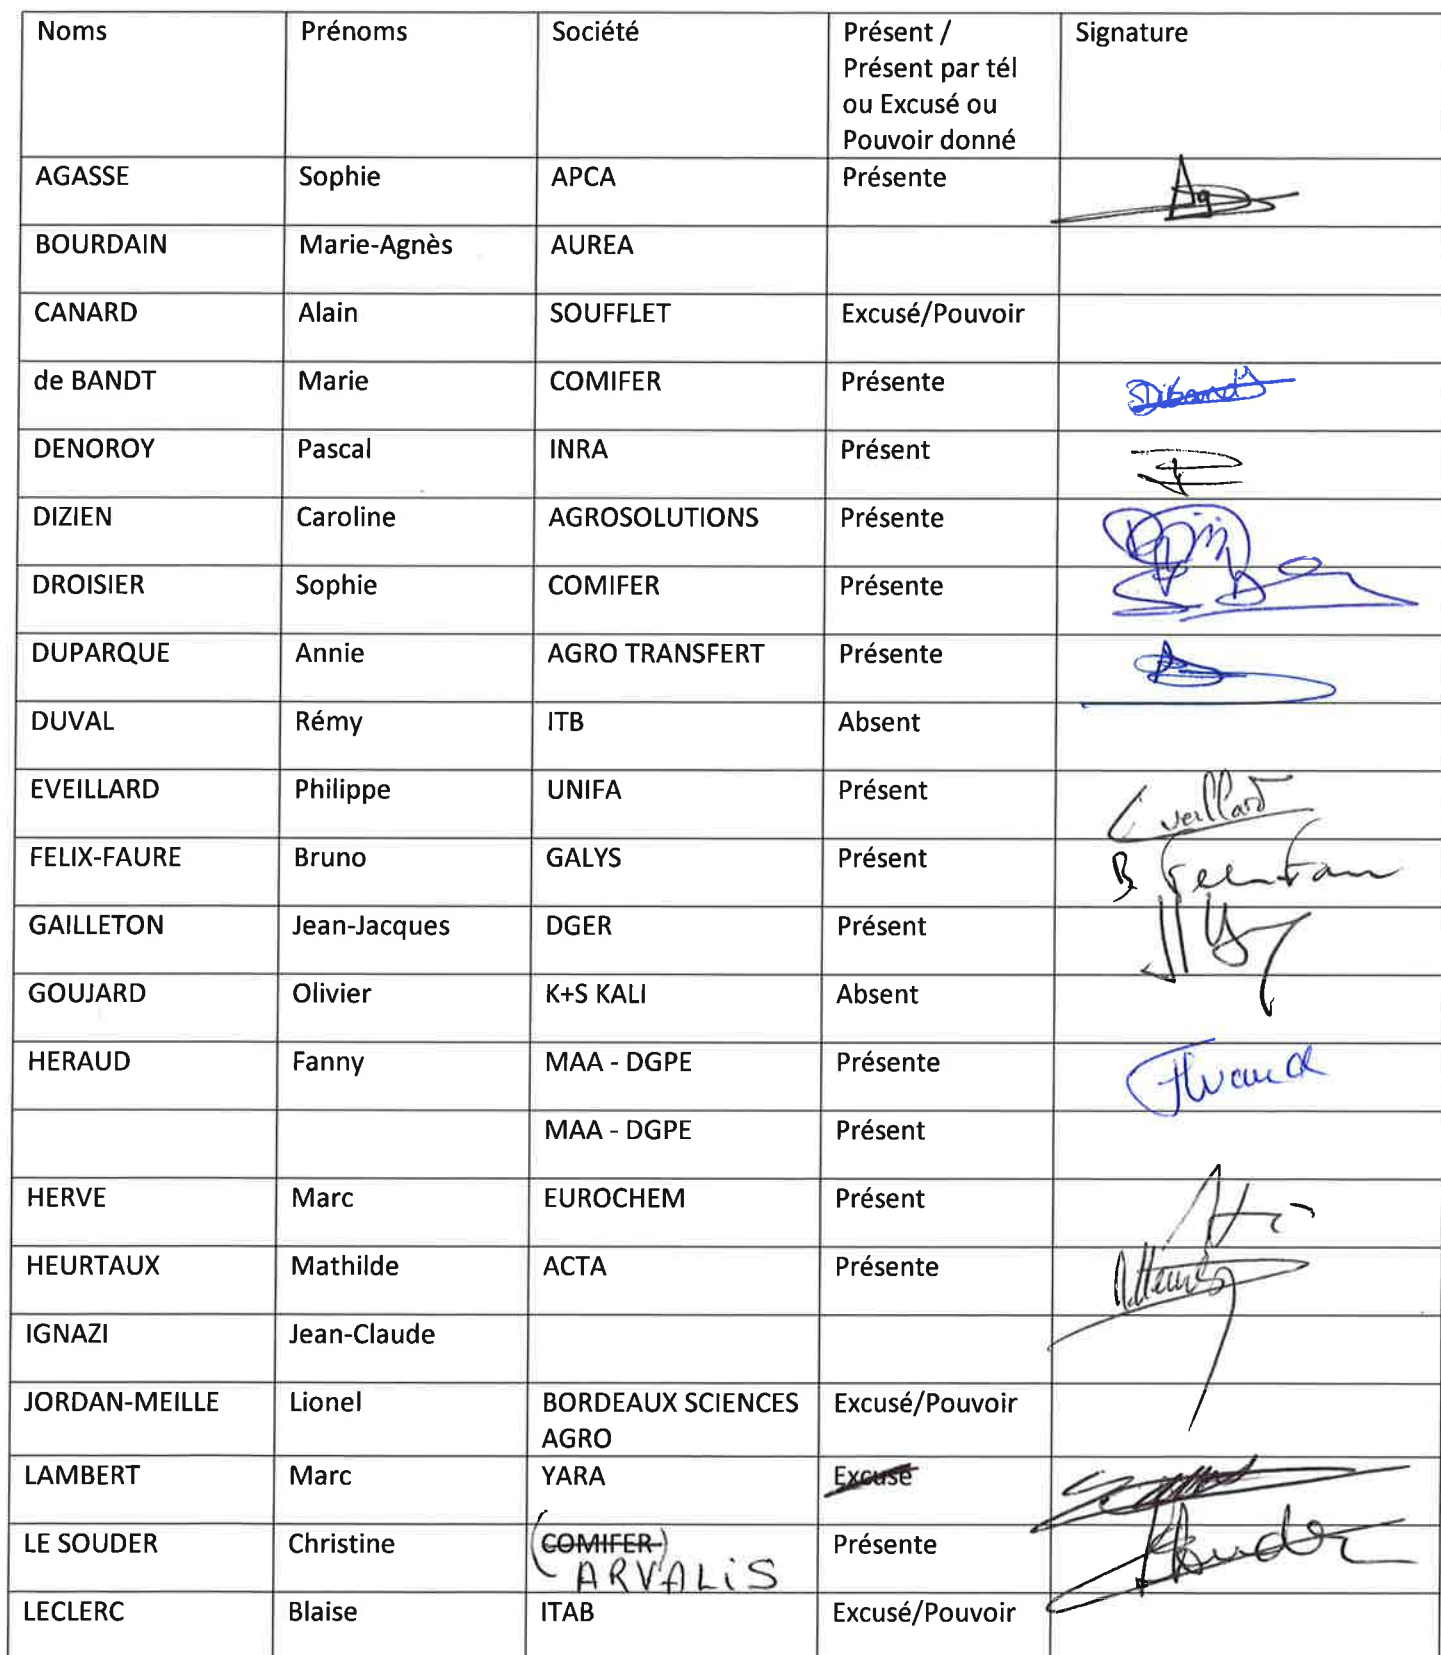 Noms Prénoms Société Présent / Signature
Présent par tél
ou Excusé ou
Pouvoir donné
AGASSE Sophie APCA Présente
BOURDAIN Marie-Agnès AUREA
CANARD Alain SOUFFLET Excusé/Pouvoir
de BANDT Marie COMIFER Présente
DENOROY Pascal INRA Présent
DIZIEN Caroline AGROSOLUTIONS Présente
DROISIER Sophie COMIFER Présente
DUPARQUE Annie AGRO TRANSFERT Présente
DUVAL Rémy ITB Absent
EVEILLARD Philippe UNIFA Présent
FELIX-FAURE Bruno GALYS Présent
GAILLETON Jean-Jacques DGER Présent
GOUJARD Olivier K+S KALI Absent
HERAUD Fanny MAA - DGPE Présente
MAA - DGPE Présent
HERVE Marc EUROCHEM Présent
HEURTAUX Mathilde ACTA Présente
IGNAZI Jean-Claude
JORDAN-MEILLE Lionel BORDEAUX SCIENCES Excusé/Pouvoir
AGRO
LAMBERT Marc YARA Excusé
LE SOUDER Christine (COMIFER) Présente
ARVALIS
LECLERC Blaise ITAB Excusé/Pouvoir